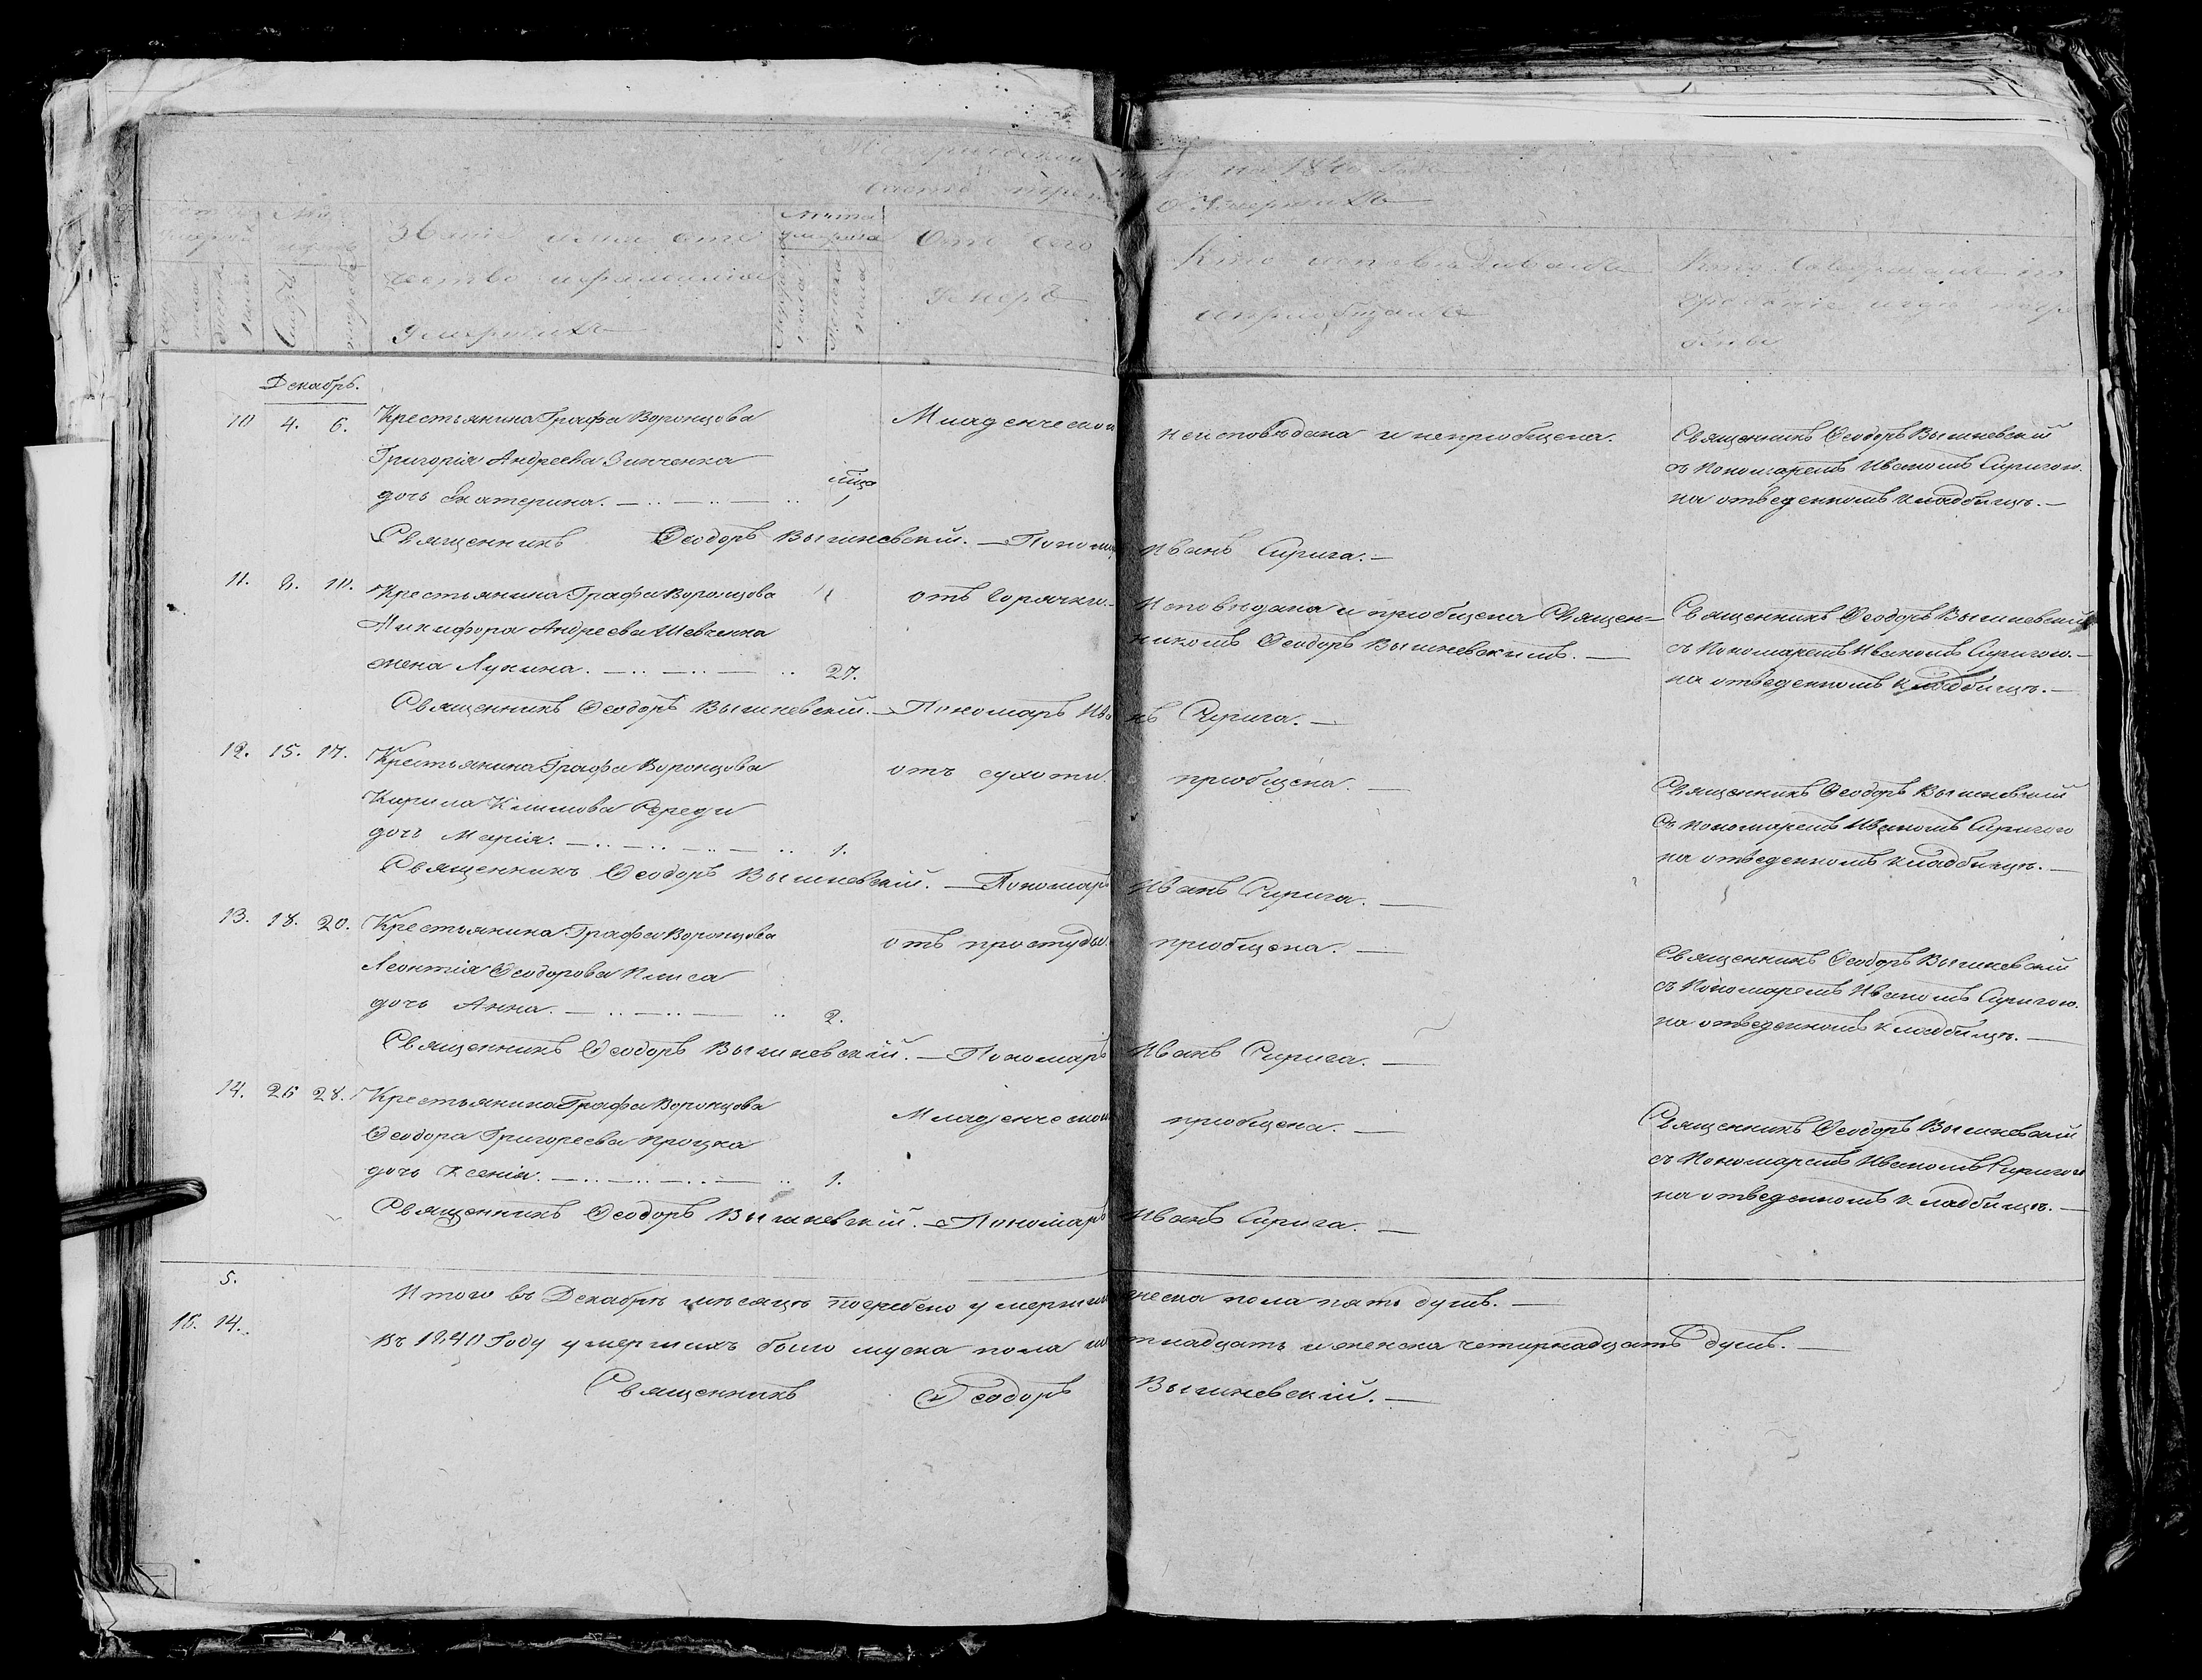 на 1840 года
Часть
о Умершихъ
Званіе имя отче
ство и фамилія
Умершихъ
Лѣта
Отъ чего
Умеръ
Кто исповѣдывалъ
и пріобщалъ
Кто Совершалъ по
Декабрь.
10 4. 6. Крестьянина Графа Воронцова Младенческой неисповѣдана и непріобщена. Священникъ Ѳеодоръ Вышневскій
Григорія Андреева Зинченка съ Пономаремъ Иваномъ Сиригою.
дочь Екатерина. 1 на отведенномъ кладбищѣ.
Священникъ Ѳеодоръ Вышневскій. Иванъ Сирига.
11. 8. 10. Крестьянина Графа Воронцова отъ Горячки. Исповѣдана и пріобщена Священ= Священникъ Ѳеодоръ Вышневскій
Никифора Андреева Шевченка никомъ Ѳеодоръ Вышневскимъ. съ Пономаремъ Иваномъ Сиригою.
жена Лукина. 27. на отведенномъ кладбищѣ.
Священникъ Ѳеодоръ Вышневскій. Пономарь Иванъ Сирига.
12. 15. 17. Крестьянина Графа Воронцова отъ сухоти. пріобщена. Священникъ Ѳеодоръ Вышневскій
Кирила Климова Середи съ пономаремъ Иваномъ Сиригою
дочь Марія. 1. на отведенномъ кладбищѣ.
Священникъ Ѳеодоръ Вышневскій. Пономарь Иванъ Сирига.
13. 18. 20. Крестьянина Графа Воронцова отъ простуды. пріобщена. Священникъ Ѳеодоръ Вышневскій
Леонтія Ѳеодорова съ Пономаремъ Иваномъ Сиригою.
дочь Анна. 2. на отведенномъ кладбищѣ.
Священникъ Ѳеодоръ Вышневскій. Пономарь Иванъ Сирига.
14. 26 28. Крестьянина Графа Воронцова Младенческой пріобщена. Священникъ Ѳеодоръ Вышневскій
Ѳеодора Григореева Процка съ Пономаремъ Иваномъ Сиригою
дочь Ксенія. 1. на отведенномъ кладбищѣ.
Священникъ Ѳеодоръ Вышневскій. Пономарь Иванъ Сирига.
5. Итого въ Декабрѣ мѣсяцѣ погребено умершихъ женска пола пять душъ.
14. Въ 1840 Году умершихъ было муска пола и женска четирнадцать душъ.
Священникъ Ѳеодоръ Вышневскій.